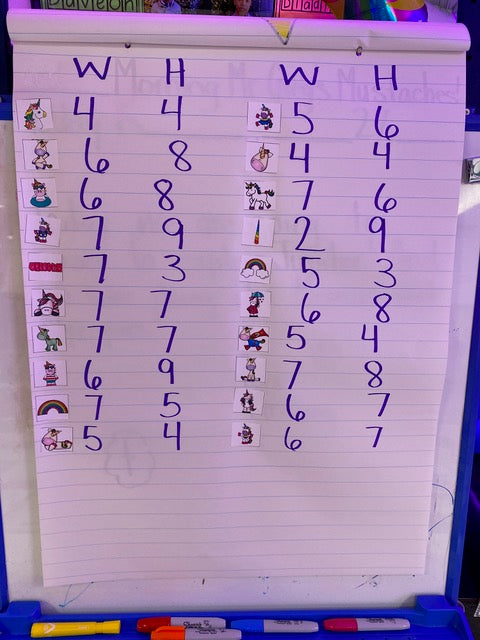 W H W H
4 4 5 6
6 8 4 4
6 8 7 6
7 9 2 9
7 3 5 3
7 7 6 8
7 7 5 4
6 9 7 8
7 5 6 7
5 4 6 7